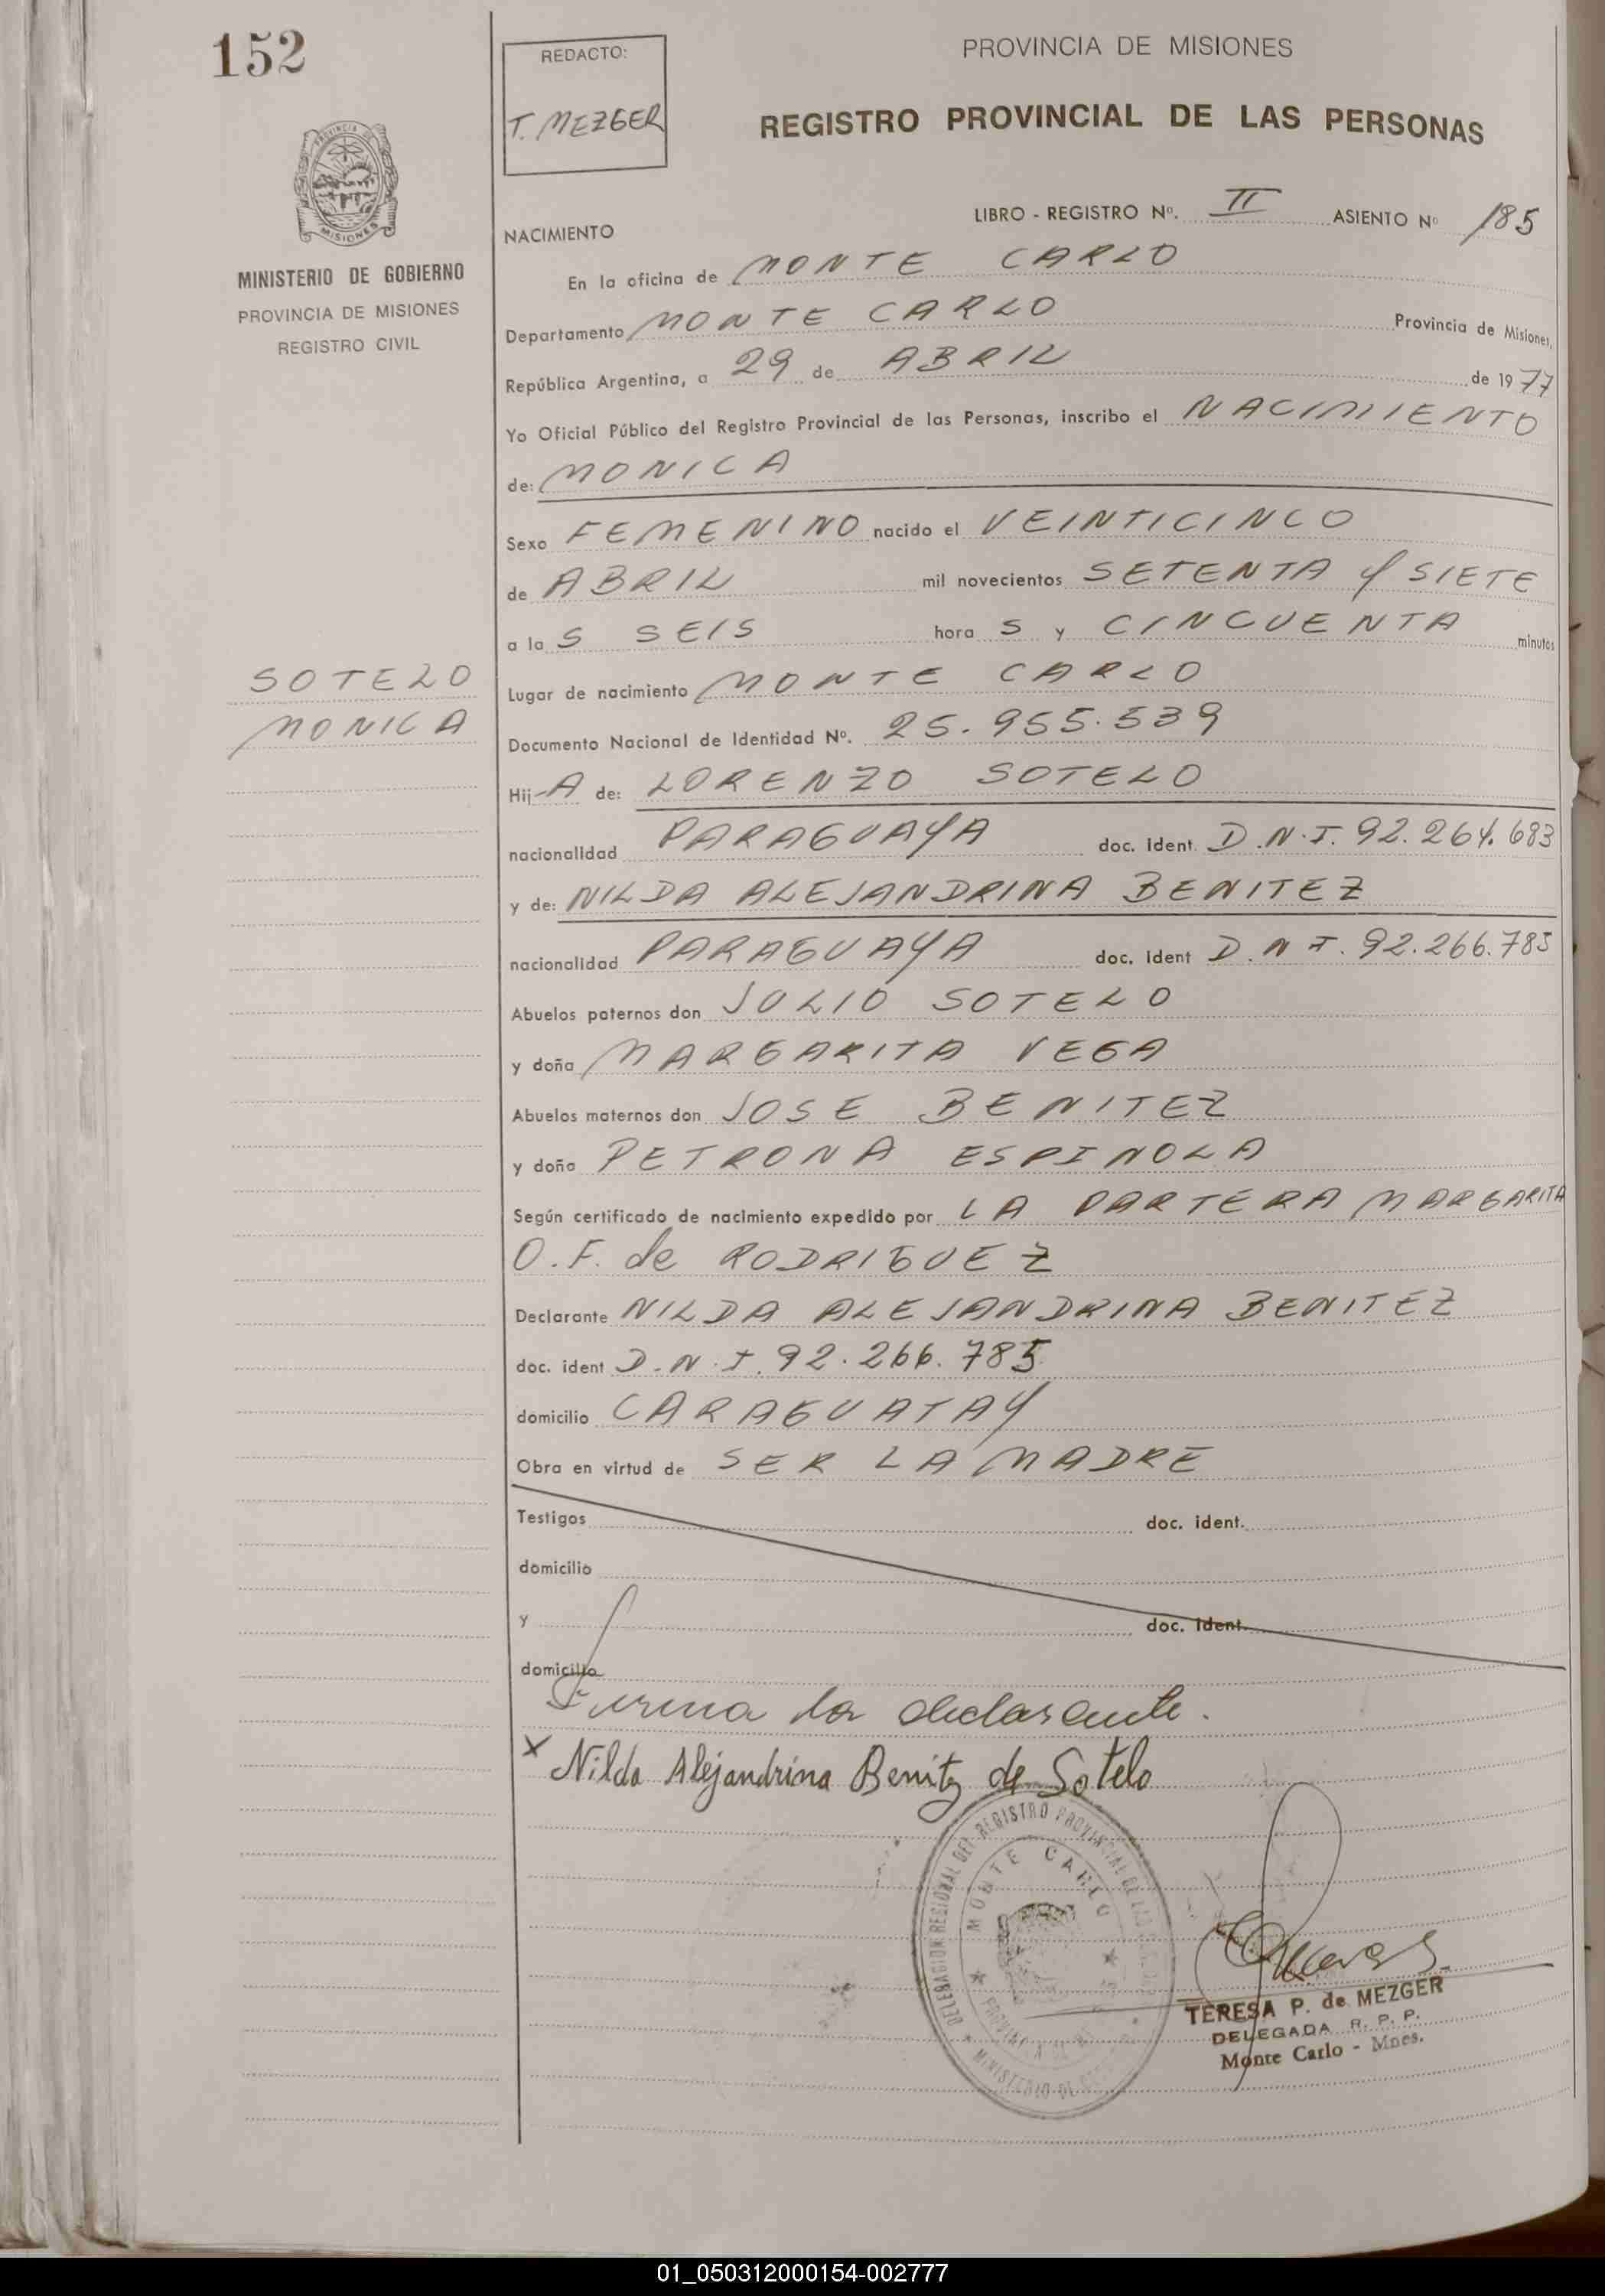 152
REDACTO:
T. MEZGER
PROVINCIA DE MISIONES
REGISTRO PROVINCIAL DE LAS PERSONAS
PROVINCIA DE
MISIONES
MINISTERIO DE GOBIERNO
PROVINCIA DE MISIONES
REGISTRO CIVIL
LIBRO - REGISTRO Nº. II ASIENTO Nº 185
NACIMIENTO
En la oficina de MONTE CARLO
Departamento MONTE CARLO Provincia de Misiones,
República Argentina, a 29 de ABRIL de 1977
Yo Oficial Público del Registro Provincial de las Personas, inscribo el NACIMIENTO
de: MONICA
Sexo FEMENINO nacido el VEINTICINCO
de ABRIL mil novecientos SETENTA Y SIETE
a la S SEIS hora S y CINCUENTA minutos
SOTELO
MONICA
Lugar de nacimiento MONTE CARLO
Documento Nacional de Identidad Nº. 25.955.539
Hij A de: LORENZO SOTELO
nacionalidad PARAGUAYA doc. ident. D.N.I. 92.264.683
y de: NILDA ALEJANDRINA BENITEZ
nacionalidad PARAGUAYA doc. ident D.N.I. 92.266.785
Abuelos paternos don JULIO SOTELO
y doña MARGARITA VEGA
Abuelos maternos don JOSE BENITEZ
y doña PETRONA ESPINOLA
Según certificado de nacimiento expedido por LA PARTERA MARGARITA
O.F. de RODRIGUEZ
Declarante NILDA ALEJANDRINA BENITEZ
doc. ident D.N.I. 92.266.785
domicilio CARAGUATAY
Obra en virtud de SER LA MADRE
Testigos doc. ident.
domicilio
y doc. ident.
domicilio
Firma la declarante.
x Nilda Alejandrina Benitz de Sotelo
DELEGACION REGIONAL DEL REGISTRO PROVINCIAL DE
MONTE CARLO
MINISTERIO DE
TERESA P. de MEZGER
DELEGADA R. P. P.
Monte Carlo - Mnes.
01_050312000154-002777